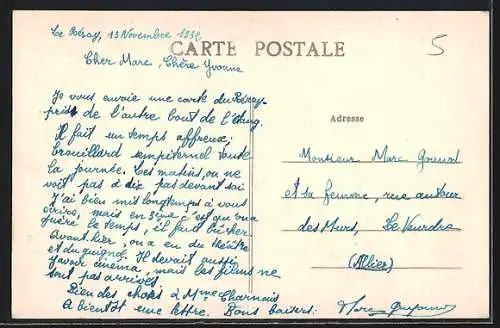 Le Péray, 13 Novembre 193
CARTE POSTALE
5
Cher Marc, Chère Yvonne
Je vous envoie une carte du Péray
prise de l'autre bout de l'étang.
Il fait un temps affreux;
brouillard sempiternel toute
la journée. Ces matins, on ne
voit pas à dix pas devant soi
J'ai bien mis longtemps à vous
écrire, mais en 3ème c'est qu'on a
guère le temps, il faut bûcher
Avant-hier, on a eu du théâtre
et du guignol. Il devait aussi
y avoir cinéma, mais les films ne
sont pas arrivés
Bien des choses à Mme Charnais
A bientôt une lettre. Bons baisers:
Adresse
Monsieur Marc Gounod
et sa femme, rue autour
des Murs, Le Veurdre
(Allier)